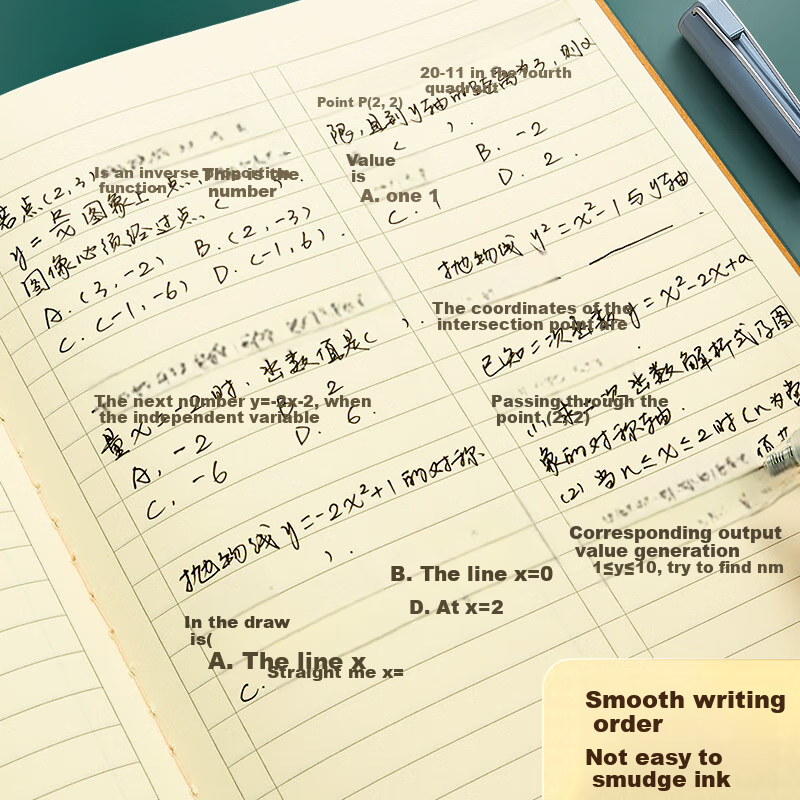 Is an inverse proportion
function
This is the
number
若点(2,3)
y = k/x 图象上一点,
图像必须经过点、( ).
A. (3, -2) B. (2, -3)
C. (-1, -6) D. (-1, 6).
The next number y=-2x-2, when
the independent variable
量x=-2时, 函数值是( ).
A. -2 B. 2
C. -6 D. 6.
抛物线 y=-2x²+1 的对称
).
B. The line x=0
D. At x=2
In the draw
is(
A. The line x
Straight me x=
C.
20-11 in the fourth
quadrant
Point P(2, 2)
限, 且到y轴的距离为3, 则a
( ).
Value
is
B. -2
A. one 1
D. 2.
C. 1
抛物线 y²=x²-1与y轴
.
The coordinates of the
intersection point are
已知二次函数y=x²-2x+a
Passing through the
point (2,2)
(1)求二次函数解析式及图
象的对称轴.
(2)当n≤x≤2时(n为
Corresponding output
value generation
1≤y≤10, try to find nm
Smooth writing
order
Not easy to
smudge ink